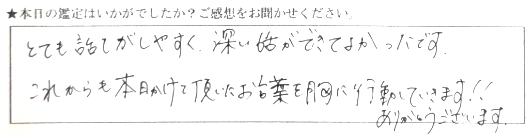 ★本日の鑑定はいかがでしたか？ご感想をお聞かせください。
とても話しがしやすく、深い話ができてよかったです。
これからも本日かけて頂いたお言葉を胸に行動していきます!!
ありがとうございます。